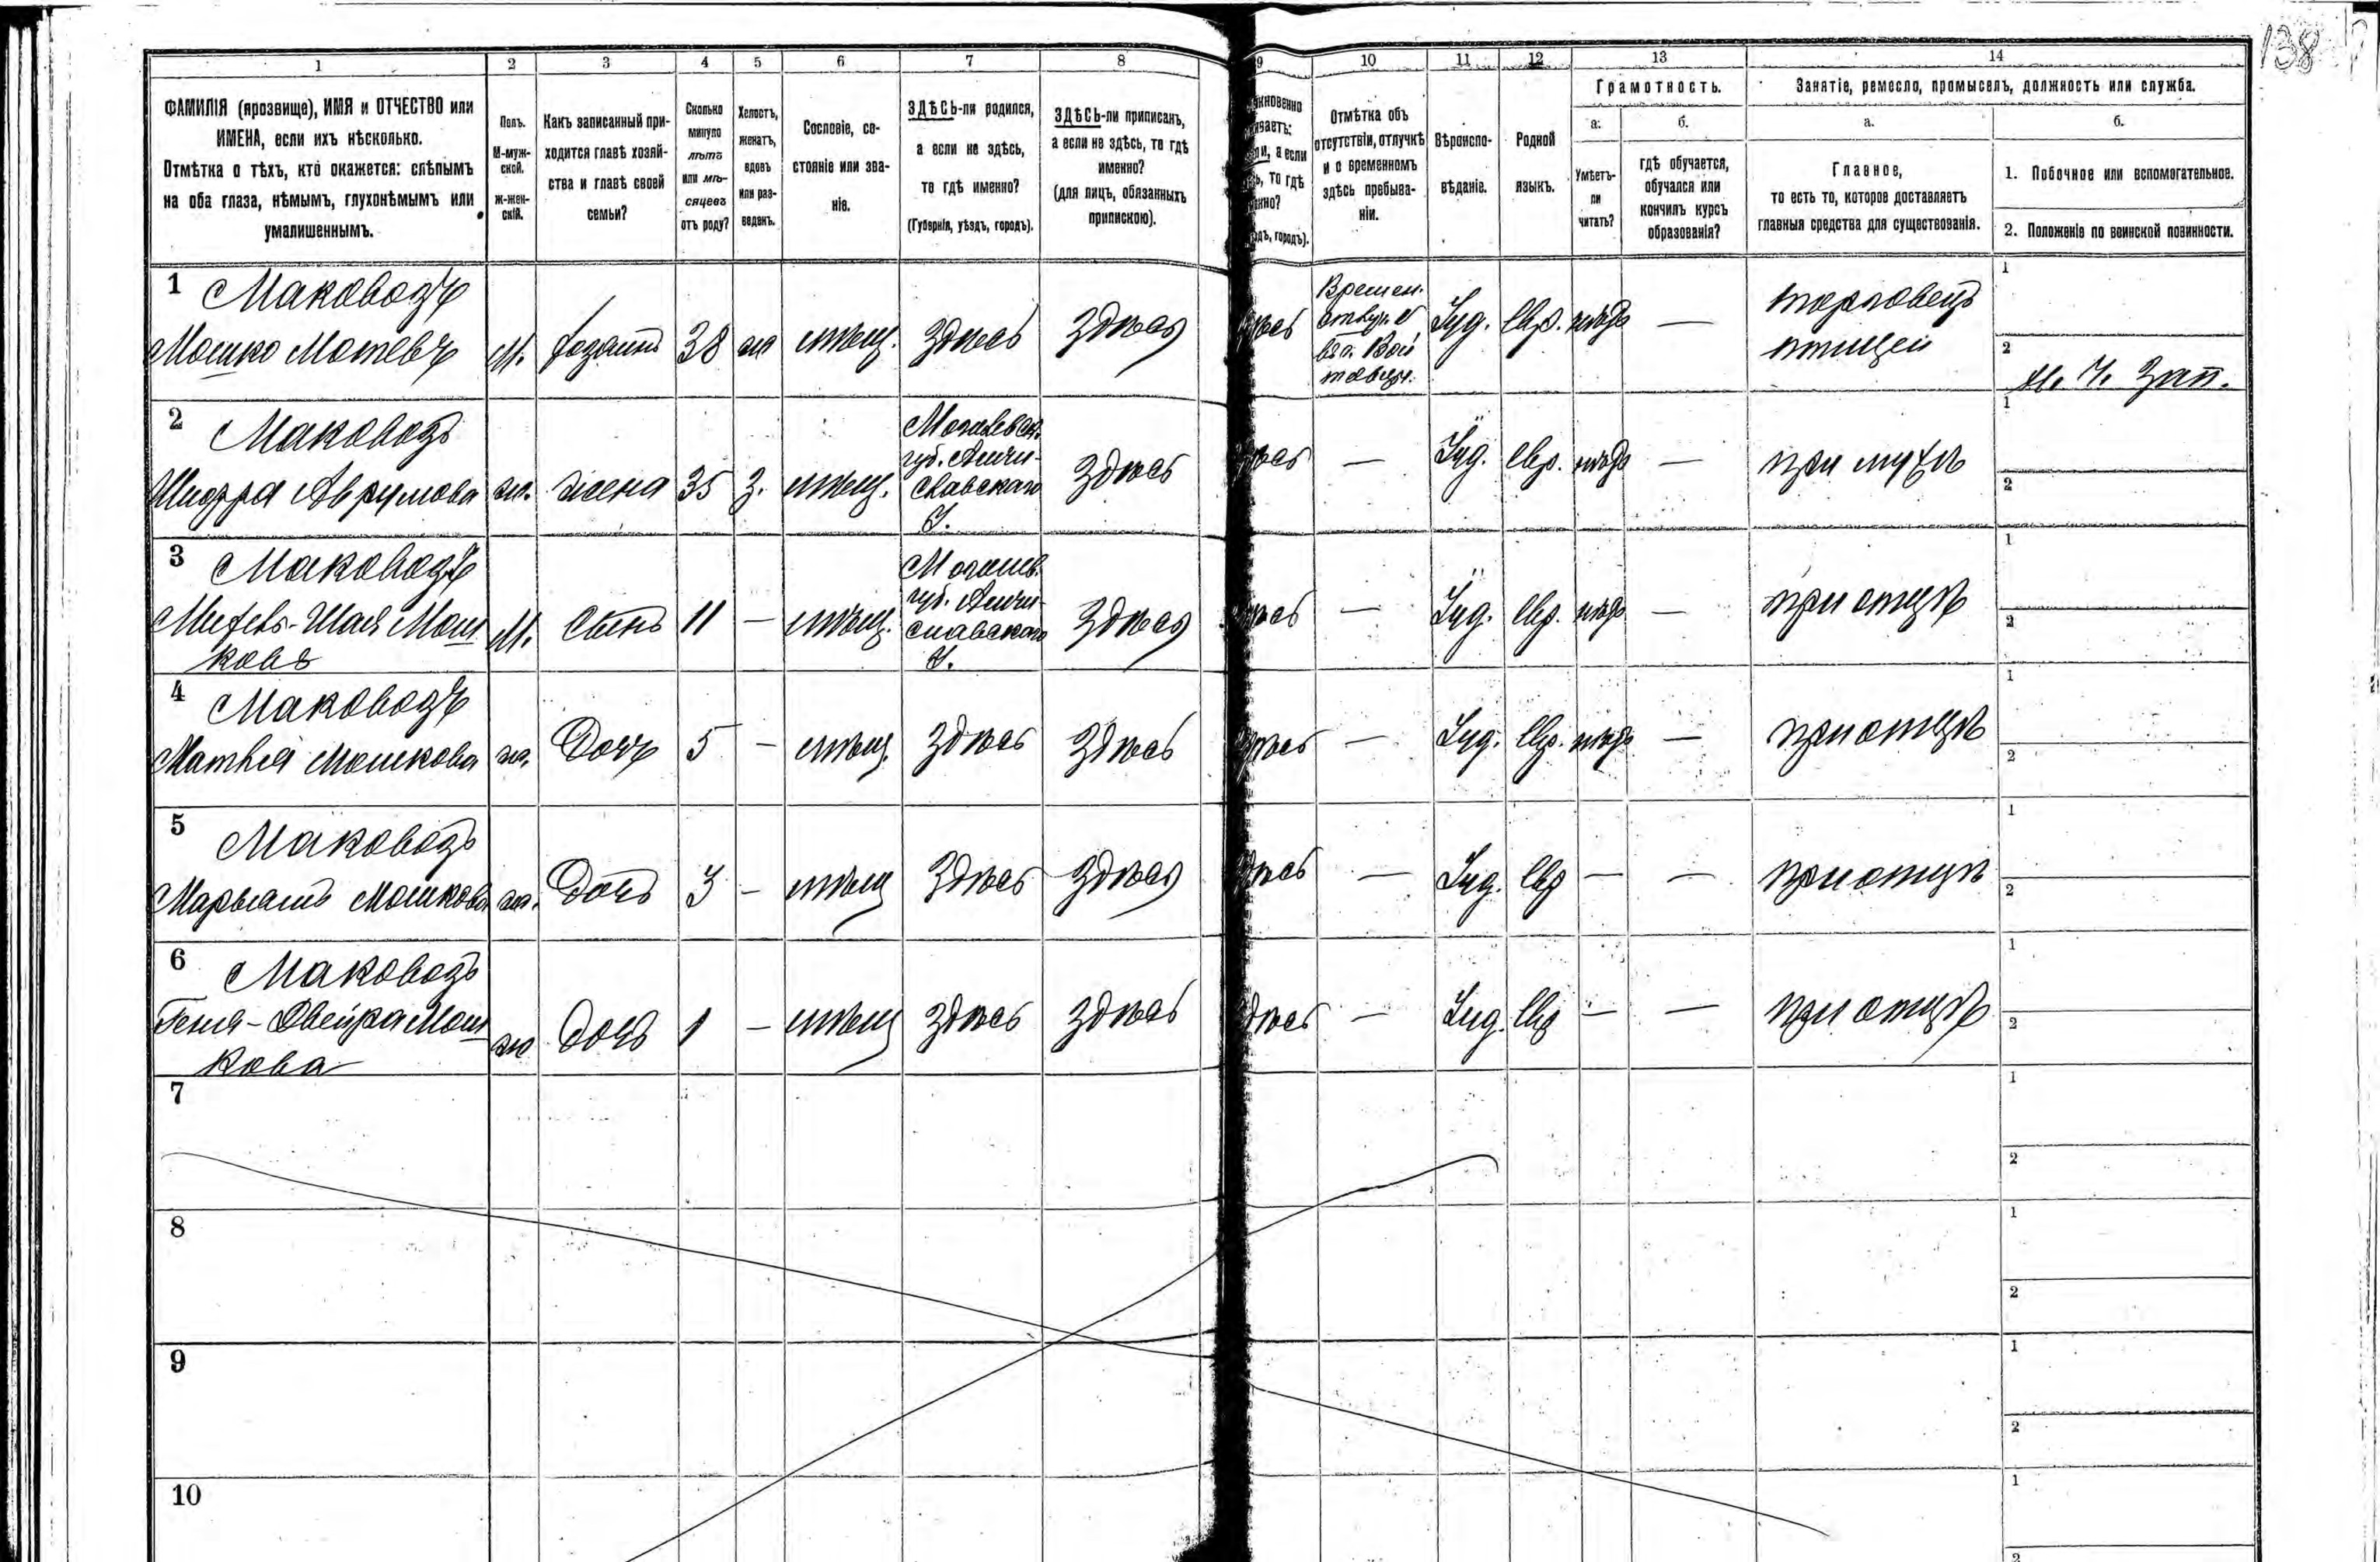 138
1 2 3 4 5 6 7 8 9 10 11 12 13 14
ФАМИЛІЯ (прозвище), ИМЯ и ОТЧЕСТВО или
ИМЕНА, если ихъ нѣсколько.
Отмѣтка о тѣхъ, кто окажется: слѣпымъ
на оба глаза, нѣмымъ, глухонѣмымъ или
умалишеннымъ.
Полъ.
М-муж-
ской.
ж-жен-
скій.
Какъ записанный при-
ходится главѣ хозяй-
ства и главѣ своей
семьи?
Сколько
минуло
лѣтъ
или мѣ-
сяцевъ
отъ роду?
Холостъ,
женатъ,
вдовъ
или раз-
веденъ.
Сословіе, со-
стояніе или зва-
ніе.
ЗДѢСЬ-ли родился,
а если не здѣсь,
то гдѣ именно?
(Губернія, уѣздъ, городъ).
ЗДѢСЬ-ли приписанъ,
а если не здѣсь, то гдѣ
именно?
(для лицъ, обязанныхъ
припискою).
Отмѣтка объ
отсутствіи, отлучкѣ
и о временномъ
здѣсь пребыва-
ніи.
Вѣроиспо-
вѣданіе.
Родной
языкъ.
Грамотность.
а.
Умѣетъ-
ли
читать?
б.
гдѣ обучается,
обучался или
кончилъ курсъ
образованія?
Занятіе, ремесло, промыселъ, должность или служба.
а.
Главное,
то есть то, которое доставляетъ
главныя средства для существованія.
б.
1. Побочное или вспомогательное.
2. Положеніе по воинской повинности.
1 Маководъ
Мошко Мотевъ М. хозяинъ 38 ж мѣщ. здѣсь здѣсь Іуд. Евр. нѣтъ — торговецъ
птицей
1
2
2 Маководъ
Аврумова ж. жена 35 З. мѣщ. здѣсь — Іуд. Евр. нѣтъ — при мужѣ
1
2
3 Маководъ
Шая Мош
ковъ М. Сынъ 11 — мѣщ. здѣсь — Іуд. Евр. нѣтъ — при отцѣ
1
2
4 Маководъ
Мошкова ж. Дочь 5 — мѣщ. здѣсь здѣсь — Іуд. Евр. нѣтъ — при отцѣ
1
2
5 Маководъ
Марьямъ Мошкова ж. Дочь 3 — мѣщ здѣсь здѣсь здѣсь — Іуд. Евр — — при отцѣ
1
2
6 Маководъ
Геня-Двейра Мош
кова ж Дочь 1 — мѣщ здѣсь здѣсь здѣсь — Іуд. Евр — — при отцѣ
1
2
7
1
2
8
1
2
9
1
2
10
1
2